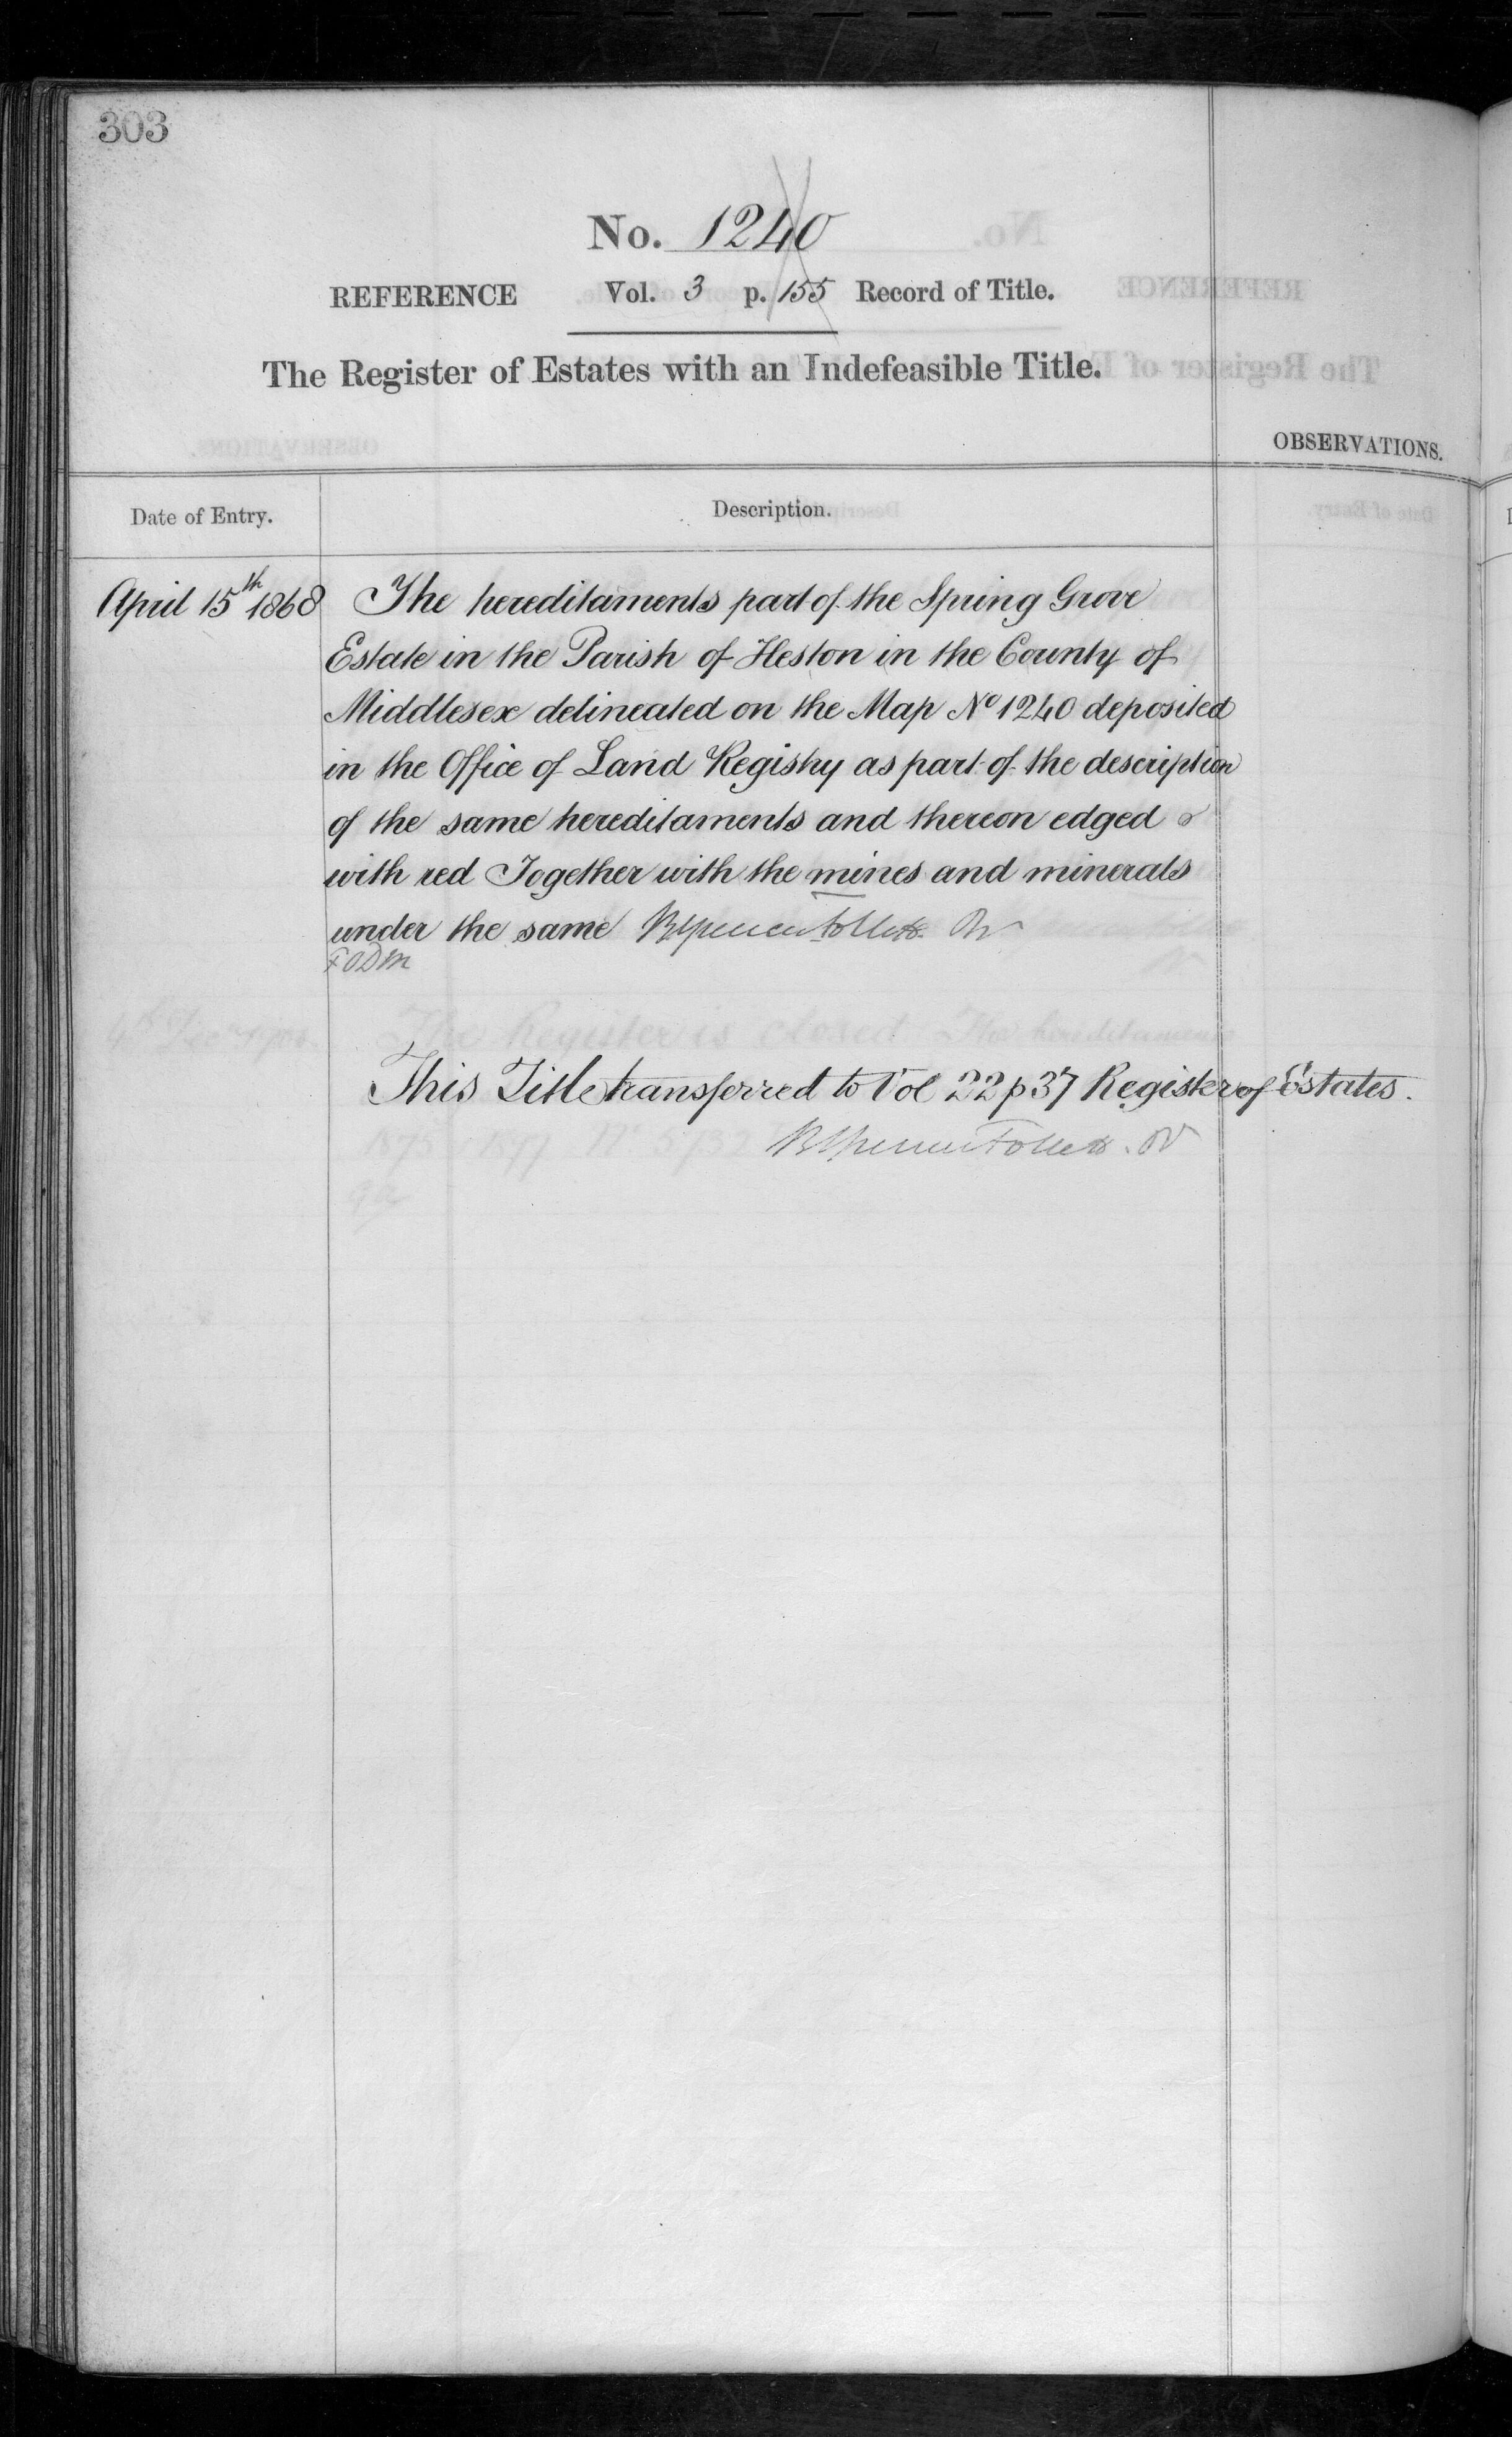 303
No. 1240
REFERENCE Vol. 3 p. 155 Record of Title.
The Register of Estates with an Indefeasible Title.
OBSERVATIONS.
Date of Entry.
Description.
April 15th 1868
The hereditaments part of the Spring Grove
Estate in the Parish of Heston in the County of
Middlesex delineated on the Map No 1240 deposited
in the Office of Land Registry as part of the description
of the same hereditaments and thereon edged
with red Together with the mines and minerals
under the same
This Title transferred to Vol 22 p 37 Register of Estates.